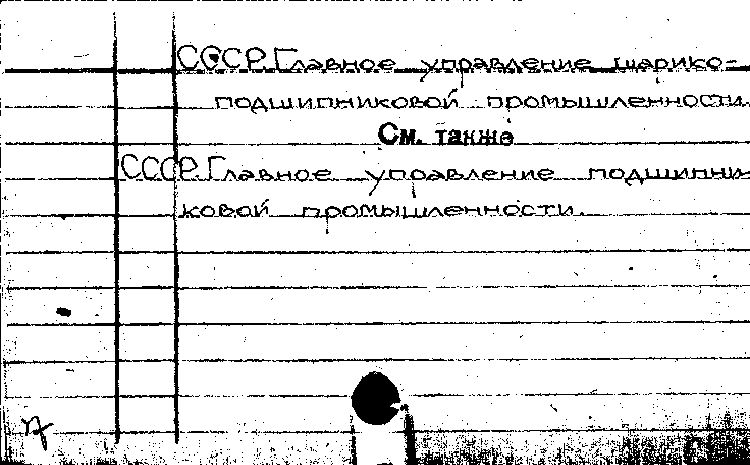 СССР. Главное управление шарико-
подшипниковой промышленности.
См. также
СССР. Главное управление подшипни-
ковой промышленности.